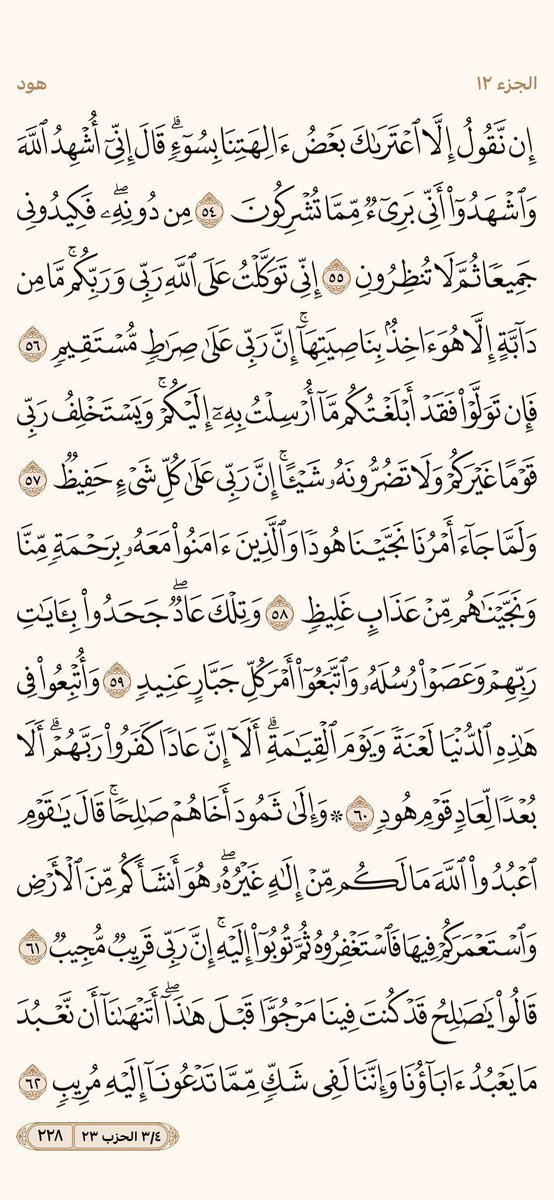 الجزء ١٢
هود
إِن نَّقُولُ إِلَّا ٱعۡتَرَىٰكَ بَعۡضُ ءَالِهَتِنَا بِسُوٓءٖۗ قَالَ إِنِّيٓ أُشۡهِدُ ٱللَّهَ
وَٱشۡهَدُوٓاْ أَنِّي بَرِيٓءٞ مِّمَّا تُشۡرِكُونَ ٥٤ مِن دُونِهِۦۖ فَكِيدُونِي
جَمِيعٗا ثُمَّ لَا تُنظِرُونِ ٥٥ إِنِّي تَوَكَّلۡتُ عَلَى ٱللَّهِ رَبِّي وَرَبِّكُمۚ مَّا مِن
دَآبَّةٍ إِلَّا هُوَ ءَاخِذُۢ بِنَاصِيَتِهَآۚ إِنَّ رَبِّي عَلَىٰ صِرَٰطٖ مُّسۡتَقِيمٖ ٥٦
فَإِن تَوَلَّوۡاْ فَقَدۡ أَبۡلَغۡتُكُم مَّآ أُرۡسِلۡتُ بِهِۦٓ إِلَيۡكُمۡۚ وَيَسۡتَخۡلِفُ رَبِّي
قَوۡمًا غَيۡرَكُمۡ وَلَا تَضُرُّونَهُۥ شَيۡـًٔاۚ إِنَّ رَبِّي عَلَىٰ كُلِّ شَيۡءٍ حَفِيظٞ ٥٧
وَلَمَّا جَآءَ أَمۡرُنَا نَجَّيۡنَا هُودٗا وَٱلَّذِينَ ءَامَنُواْ مَعَهُۥ بِرَحۡمَةٖ مِّنَّا
وَنَجَّيۡنَٰهُم مِّنۡ عَذَابٍ غَلِيظٖ ٥٨ وَتِلۡكَ عَادٞۖ جَحَدُواْ بِـَٔايَٰتِ
رَبِّهِمۡ وَعَصَوۡاْ رُسُلَهُۥ وَٱتَّبَعُوٓاْ أَمۡرَ كُلِّ جَبَّارٍ عَنِيدٖ ٥٩ وَأُتۡبِعُواْ فِي
هَٰذِهِ ٱلدُّنۡيَا لَعۡنَةٗ وَيَوۡمَ ٱلۡقِيَٰمَةِۗ أَلَآ إِنَّ عَادٗا كَفَرُواْ رَبَّهُمۡۗ أَلَا
بُعۡدٗا لِّعَادٖ قَوۡمِ هُودٖ ٦٠ ۞ وَإِلَىٰ ثَمُودَ أَخَاهُمۡ صَٰلِحٗاۚ قَالَ يَٰقَوۡمِ
ٱعۡبُدُواْ ٱللَّهَ مَا لَكُم مِّنۡ إِلَٰهٍ غَيۡرُهُۥۖ هُوَ أَنشَأَكُم مِّنَ ٱلۡأَرۡضِ
وَٱسۡتَعۡمَرَكُمۡ فِيهَا فَٱسۡتَغۡفِرُوهُ ثُمَّ تُوبُوٓاْ إِلَيۡهِۚ إِنَّ رَبِّي قَرِيبٞ مُّجِيبٞ ٦١
قَالُواْ يَٰصَٰلِحُ قَدۡ كُنتَ فِينَا مَرۡجُوّٗا قَبۡلَ هَٰذَآۖ أَتَنۡهَىٰنَآ أَن نَّعۡبُدَ
مَا يَعۡبُدُ ءَابَآؤُنَا وَإِنَّنَا لَفِي شَكّٖ مِّمَّا تَدۡعُونَآ إِلَيۡهِ مُرِيبٖ ٦٢
٣/٤ الحزب ٢٣ ٢٢٨